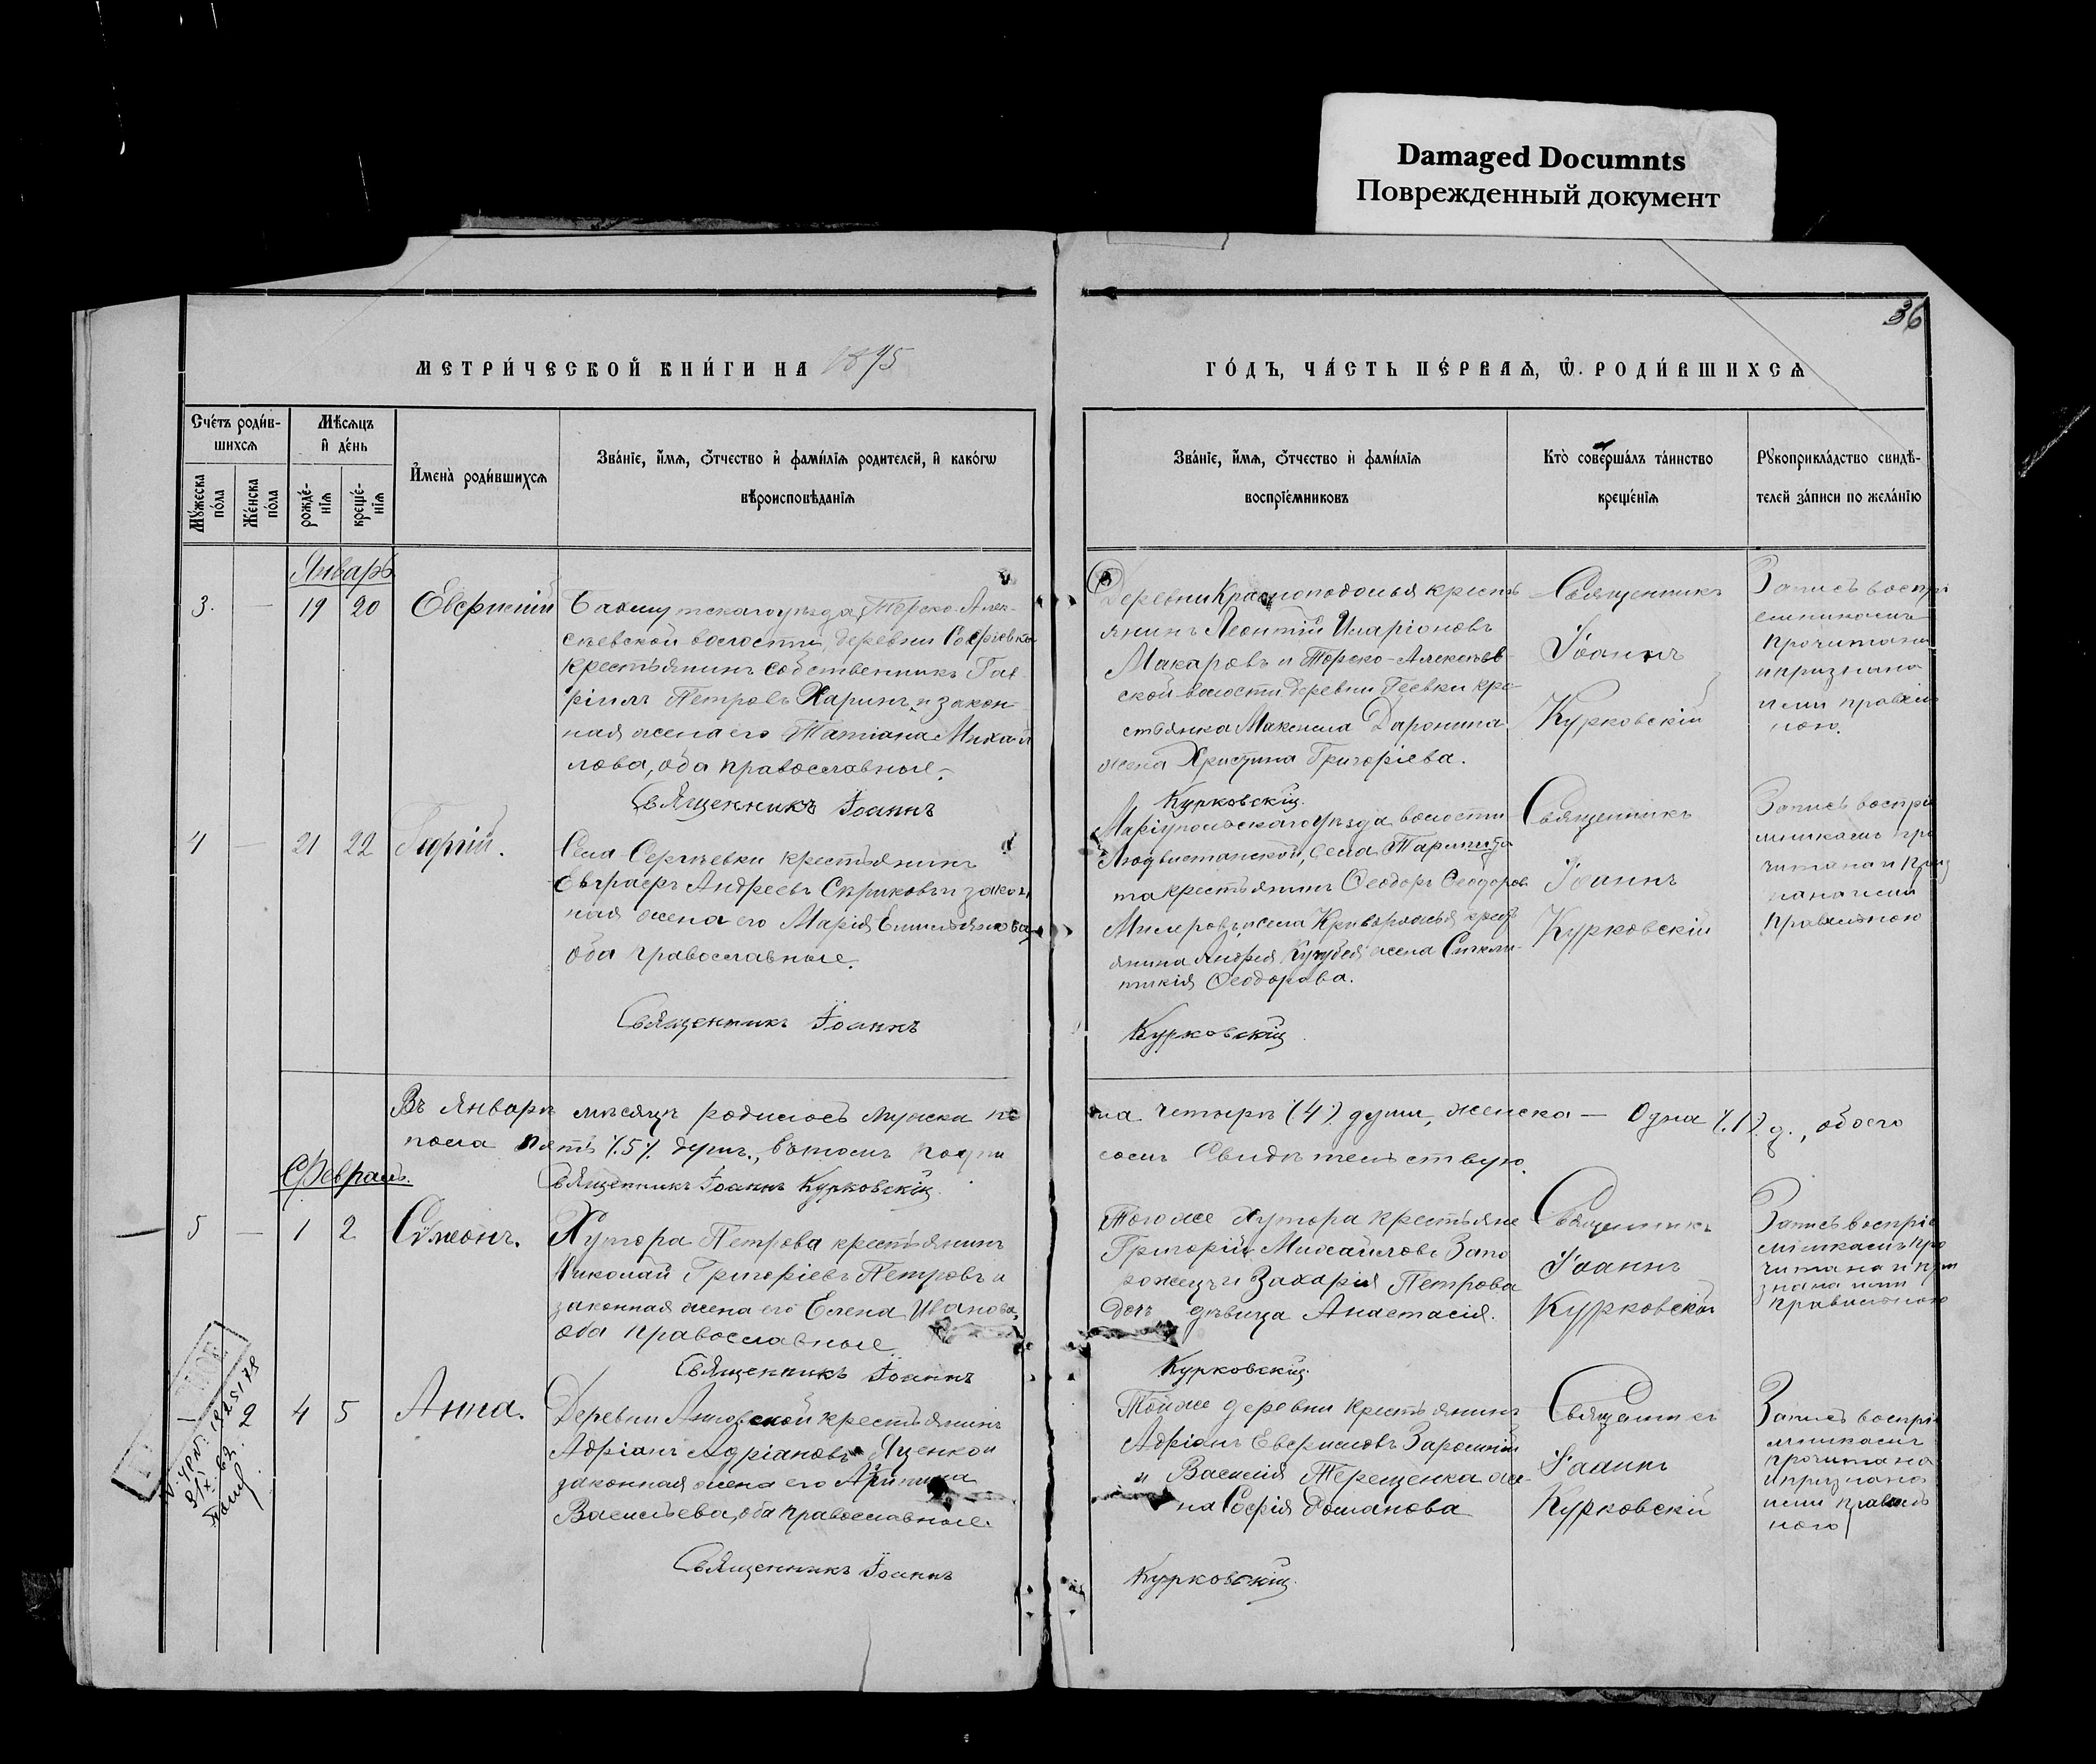 Damaged Documnts
Поврежденный документ
36
МЕТРИ́ЧЕСКОЙ КНИ́ГИ НА 1895
ГО́ДЪ, ЧА́СТЬ ПЕ́РВАѦ, Ѿ. РОДИ́ВШИХСѦ
Счéтъ роди́в-
шихсѧ
Мꙋжеска
по́ла
Же́нска
по́ла
Мѣ́сѧцъ
и҆ де́нь
рожде́-
нїѧ
креще́-
нїѧ
И҆мена̀ роди́вшихсѧ
Зва́нїе, и҆́мѧ, ѻ҆́тчество и҆ фами́лїѧ родителей, и҆ како́гѡ
вѣроисповѣ́данїѧ
Зва́нїе, и҆́мѧ, ѻ҆́тчество и҆ фами́лїѧ
воспрїе́мниковъ
Кто̀ соверша́лъ та́инство
креще́нїѧ
Рꙋкоприкла́дство свидѣ́-
телей за́писи по жела́нїю
Январь
3. — 19 20
Бахмутскаго уѣзда, Торско-Алек-
сѣевской волости, деревни Софіевки
крестьянинъ собственникъ Гав
ріилъ Петровъ Харинъ и закон-
ная жена его Татіана Михай
лова, оба православные.
Священникъ Іоаннъ
Деревни Красноподолья кресть
янинъ Леонтій Иларіоновъ
Макаровъ и Торско-Алексѣев-
ской волости деревни кре-
стьянка Максима
жена Христина Григоріева.
Курковскій
Священникъ
Іоаннъ
Курковскій
Запись воспрі
емниками
прочитана
и признана
ими правиль
ною.
4 — 21 22
Села Сергѣевки крестьянинъ
Андреевъ и закон
ная жена его Марія Емильянова
оба православные.
Священникъ Іоаннъ
Маріупольскаго уѣзда волости
села
крестьянинъ Ѳеодоръ Ѳеодоров
села Криворожья крест
янина Андрея жена
Ѳеодорова.
Курковскій
Священникъ
Іоаннъ
Курковскій
Запись воспрі
мниками про
читана и приз
нана ими
правильною
Въ Январѣ мѣсяцѣ родилось мужска по
ла четыре (4) души, женска — одна (1) д., обоего
пола пять (5) душъ, въ томъ подпи
сомъ свидѣтельствую.
Священникъ Іоаннъ Курковскій
Февраль.
5 — 1 2 Сѵмеонъ.
Хутора Петрова крестьянинъ
Николай Григоріевъ Петровъ и
законная жена его Елена Иванова,
оба православные
Священникъ Іоаннъ
Того же хутора крестьяне
Григорій Михайловъ Запо
рожецъ и Захарія Петрова
дочь дѣвица Анастасія.
Курковскій
Священникъ
Іоаннъ
Курковскій
Запись воспріе
мниками про
читана и при
знана ими
правильною
2 4 5 Анна.
Деревни крестьянинъ
Адріанъ Адріановъ Яценко и
законная жена его
Васильева, оба православные.
Священникъ Іоаннъ
Той же деревни крестьянинъ
Адріанъ
и Василія Терещенка же-
на Софія Доманова
Курковскій
Священникъ
Іоаннъ
Курковскій
Запись воспріе
мниками
прочитана
и признана
ими правиль
ною